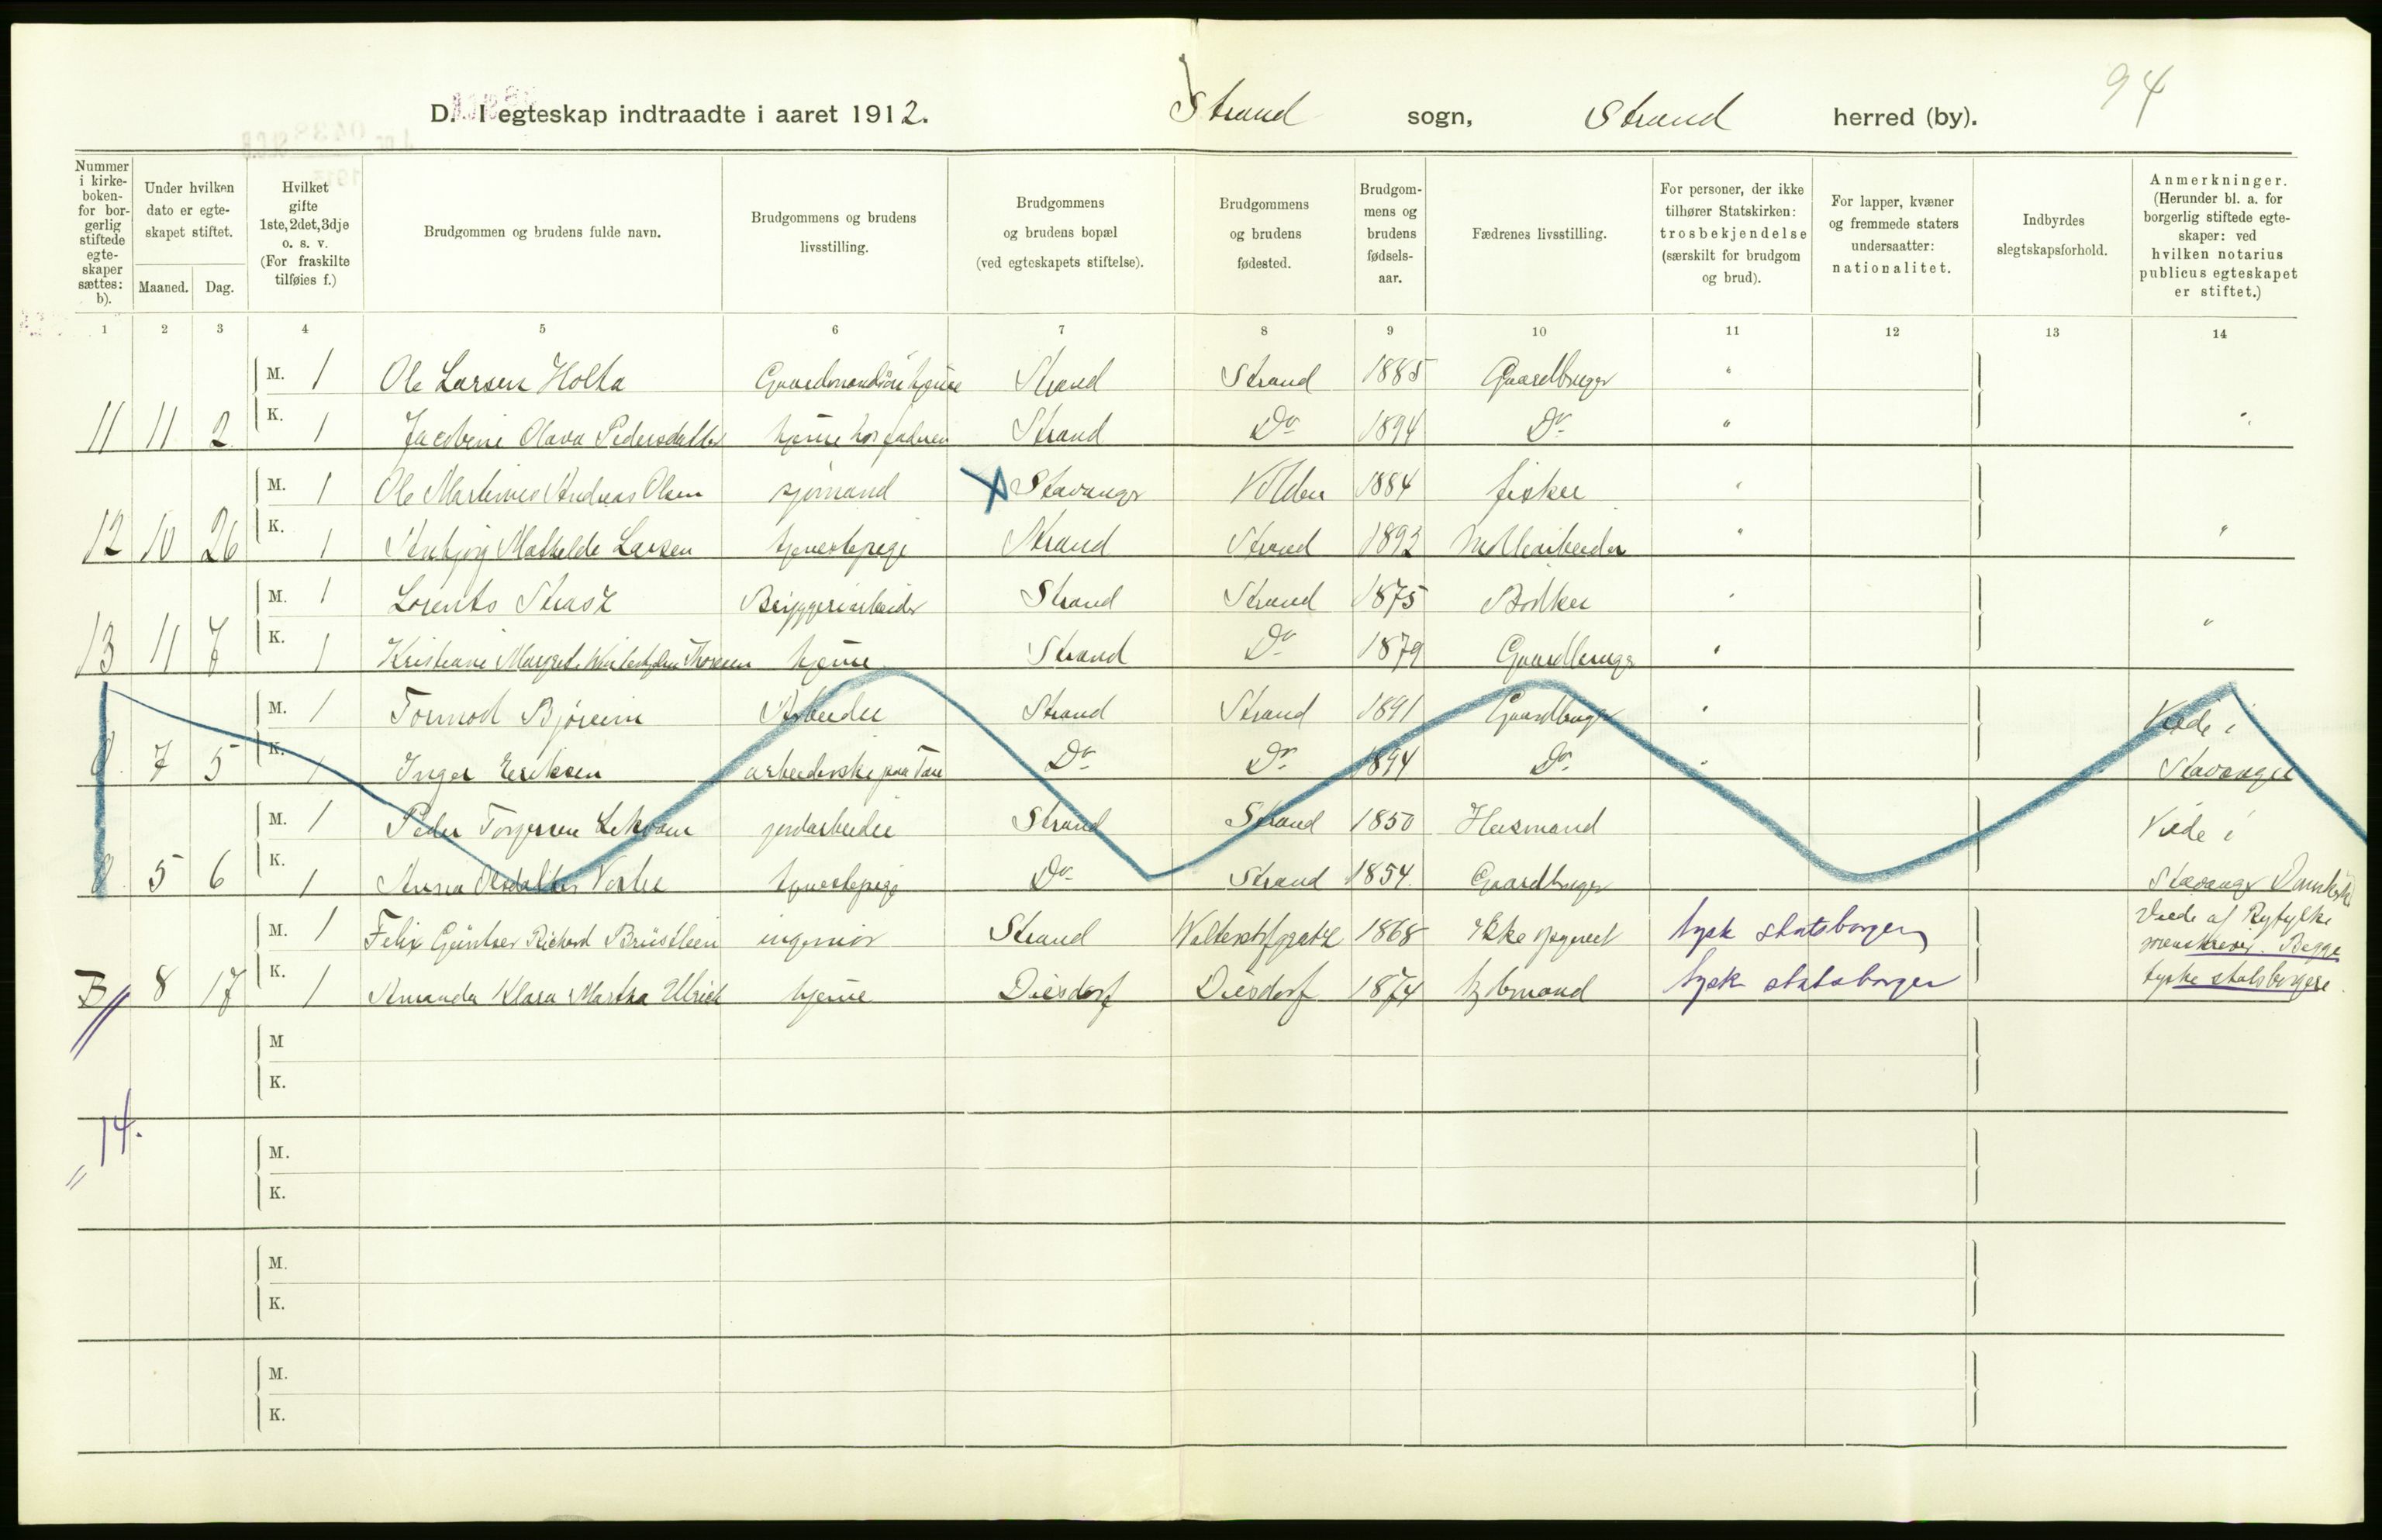 94
D. I egteskap indtraadte i aaret 1912. Strand sogn, Strand herred (by).
Nummer i kirke-boken- for bor-gerlig stiftede egte-skaper sættes: b).
Under hvilken dato er egte-skapet stiftet.
Maaned. Dag.
Hvilket gifte 1ste, 2det, 3dje o. s. v. (For fraskilte tilføies f.)
Brudgommen og brudens fulde navn.
Brudgommens og brudens livsstilling.
Brudgommens og brudens bopæl (ved egteskapets stiftelse).
Brudgommens og brudens fødested.
Brudgom-mens og brudens fødsels-aar.
Fædrenes livsstilling.
For personer, der ikke tilhører Statskirken: trosbekjendelse (særskilt for brudgom og brud).
For lapper, kvæner og fremmede staters undersaatter: nationalitet.
Indbyrdes slegtskapsforhold.
Anmerkninger. (Herunder bl. a. for borgerlig stiftede egte-skaper: ved hvilken notarius publicus egteskapet er stiftet.)
1 2 3 4 5 6 7 8 9 10 11 12 13 14
M. 1 Ole Larsen Holta Strand Strand 1885 Gaardbruger "
11 11 2 K. 1 Olava Pedersdatter hjemme hos faderen Strand Do 1894 Do " "
M. 1 Ole Martinus Andreas Olsen sjømand Stavanger 1884 fisker "
12 10 26 K. 1 Mathilde Larsen tjenestepige Strand Strand 1892 Møllearbeider " "
M. 1 Lorents Bryggeriarbeider Strand Strand 1875 Bødker "
13 11 7 K. 1 Kristiane Margrete Thorsen hjemme Strand Do 1879 Gaardbruger " "
M. 1 Tormod Bjøreim Arbeider Strand Strand 1891 Gaardbruger " Viede i
7 5 K. 1 Inger Eriksen arbeiderske paa Tau Do Do 1894 Do " Stavanger
M. 1 Peder Torgersen jordarbeider Strand Strand 1850 Husmand Viede i
5 6 K. 1 Anna Olsdatter tjenestepige Do Strand 1854 Gaardbruger Stavanger Domkirke
M. 1 Felix Günther Richard ingeniør Strand 1868 Ikke opgivet tysk statsborger Viede af Ryfylke
sorenskriver. Begge
B 8 17 K. 1 Amanda Klara Martha Ulrich hjemme Diesdorf Diesdorf 1874 tysk statsborger tyske statsborgere.
M
K.
14.
"
M.
K.
M.
K.
M.
K.